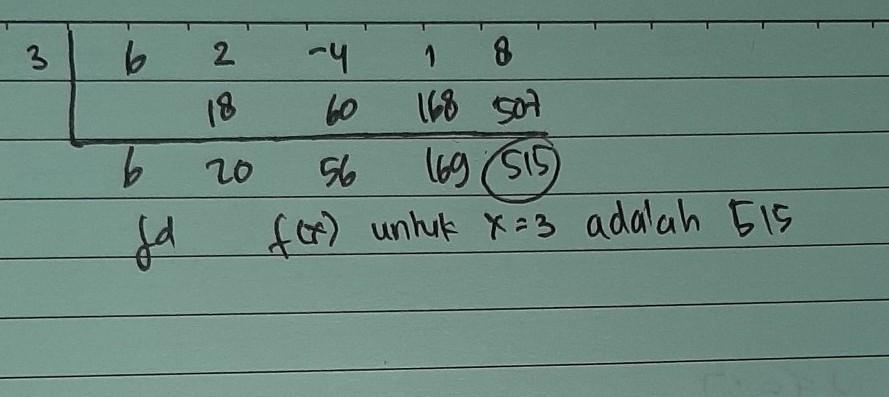 3 6 2 -4 1 8
18 60 168 507
6 20 56 169 515
Jd f(x) untuk x=3 adalah 515